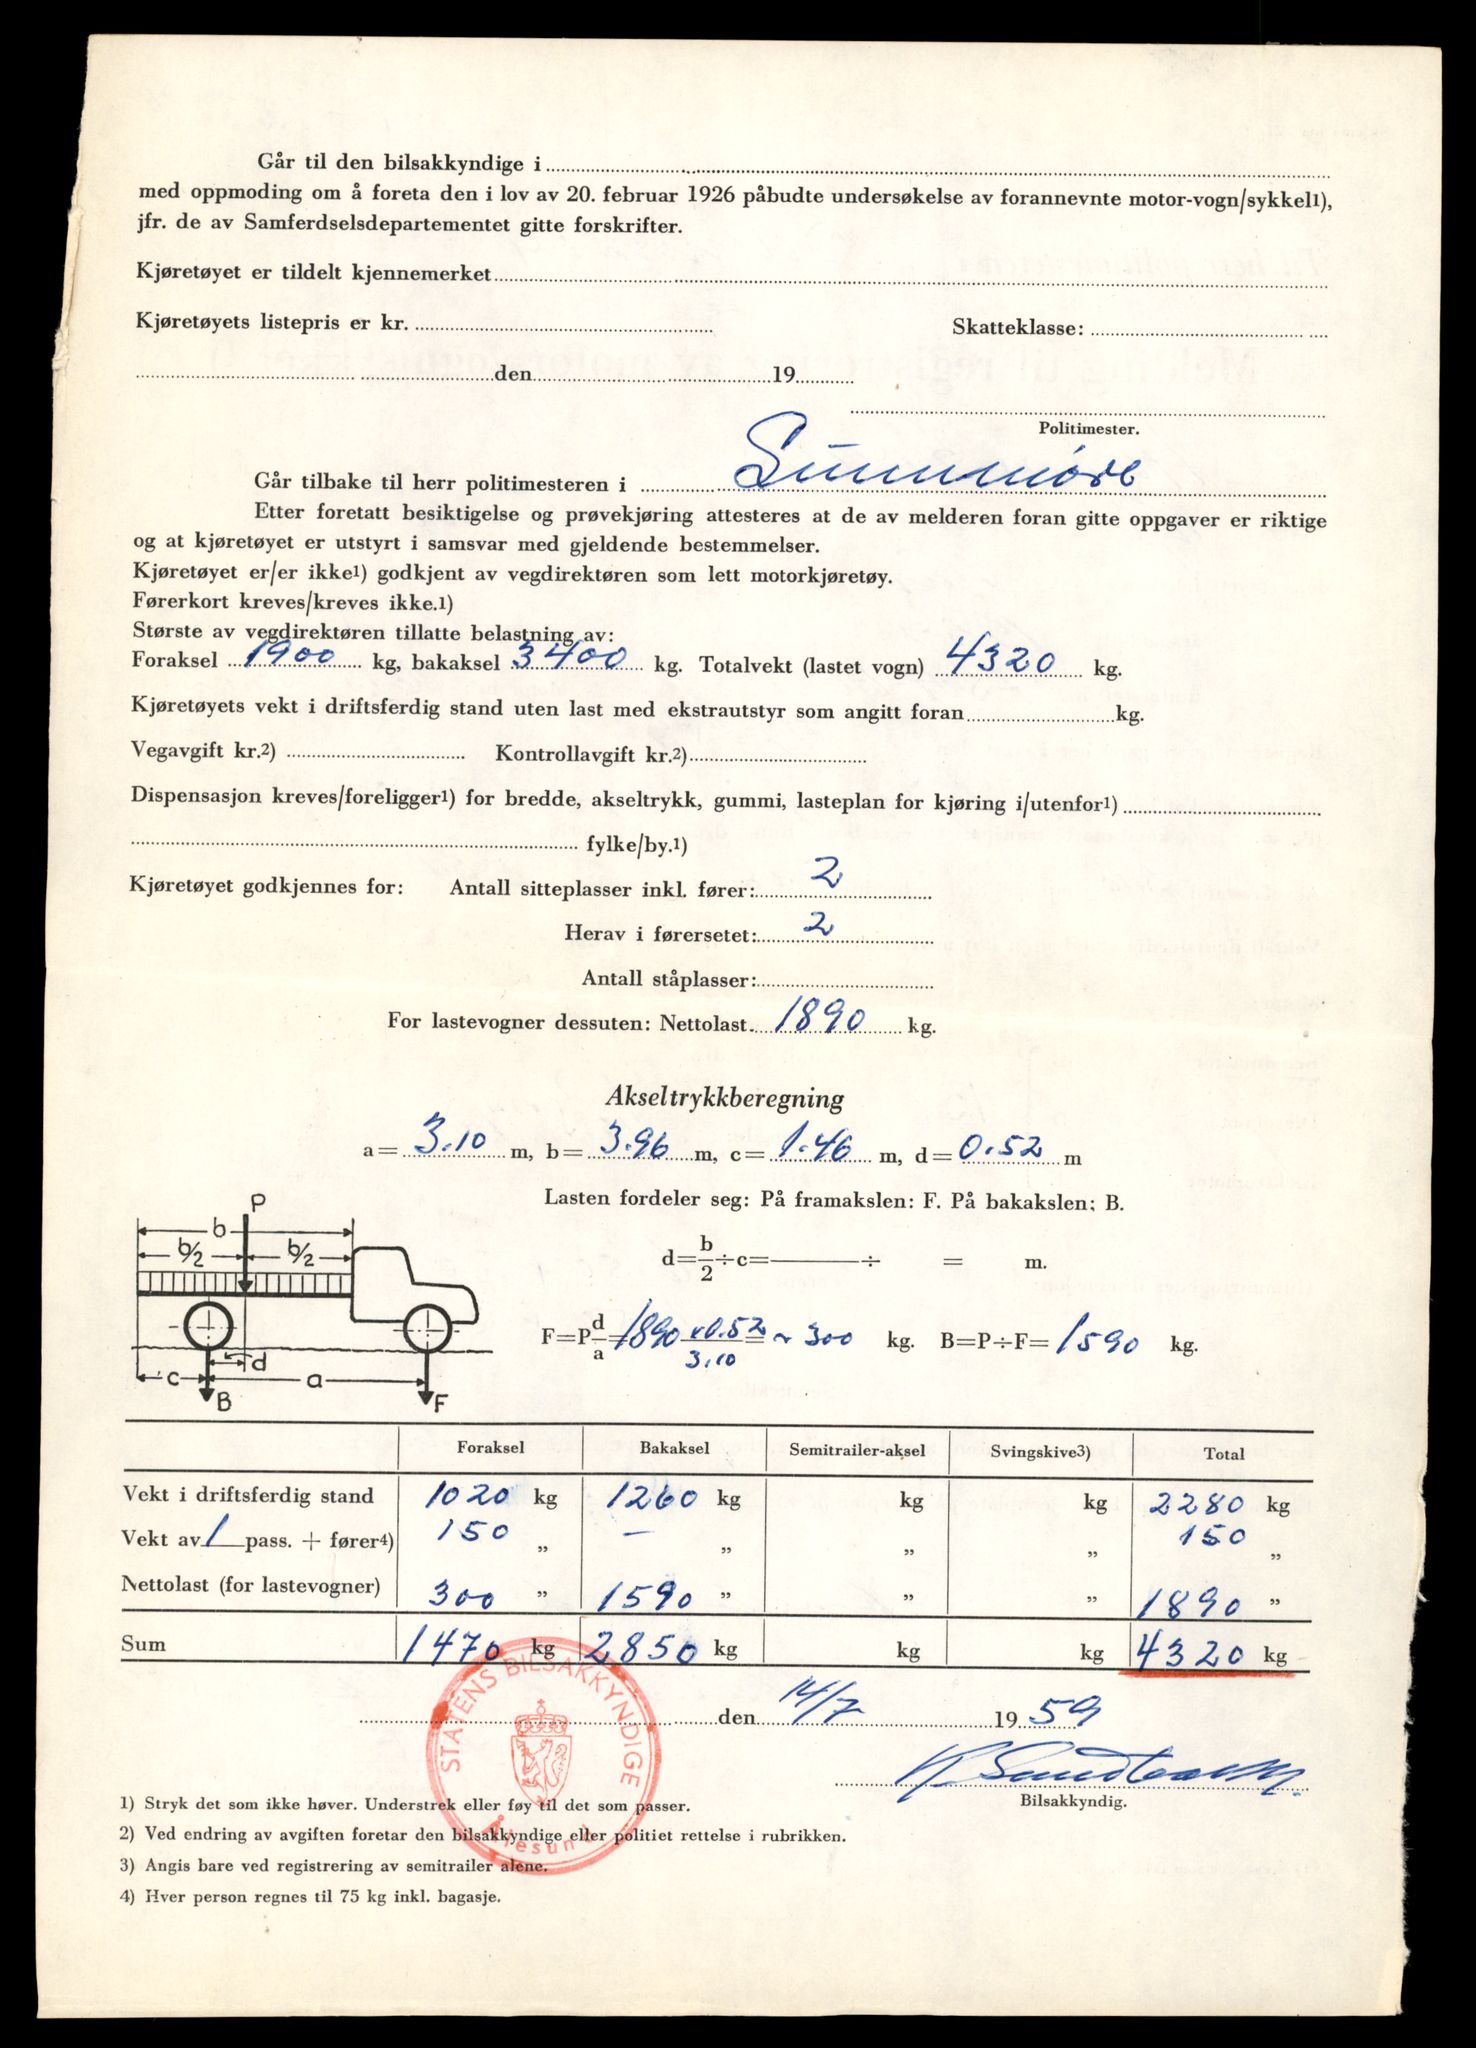 Går til den bilsakkyndige i
med oppmoding om å foreta den i lov av 20. februar 1926 påbudte undersøkelse av forannevnte motor-vogn/sykkel1),
jfr. de av Samferdselsdepartementet gitte forskrifter.
Kjøretøyet er tildelt kjennemerket
Kjøretøyets listepris er kr. Skatteklasse:
den 19
Politimester.
Går tilbake til herr politimesteren i Sunnmöre
Etter foretatt besiktigelse og prøvekjøring attesteres at de av melderen foran gitte oppgaver er riktige
og at kjøretøyet er utstyrt i samsvar med gjeldende bestemmelser.
Kjøretøyet er/er ikke1) godkjent av vegdirektøren som lett motorkjøretøy.
Førerkort kreves/kreves ikke.1)
Største av vegdirektøren tillatte belastning av:
Foraksel 1900 kg, bakaksel 3400 kg. Totalvekt (lastet vogn) 4320 kg.
Kjøretøyets vekt i driftsferdig stand uten last med ekstrautstyr som angitt foran kg.
Vegavgift kr.2) Kontrollavgift kr.2)
Dispensasjon kreves/foreligger1) for bredde, akseltrykk, gummi, lasteplan for kjøring i/utenfor1)
fylke/by.1)
Kjøretøyet godkjennes for: Antall sitteplasser inkl. fører: 2
Herav i førersetet: 2
Antall ståplasser:
For lastevogner dessuten: Nettolast 1890 kg.
Akseltrykkberegning
a= 3.10 m, b= 3.96 m, c= 1.46 m, d= 0.52 m
Lasten fordeler seg: På framakslen: F. På bakakslen; B.
P
b
b/2 b/2
d c a
B F
d=b/2÷c= ÷ = m.
F=P d/a=1890 x0.52/3.10 = ~ 300 kg. B=P÷F= 1590 kg.
Foraksel Bakaksel Semitrailer-aksel Svingskive3) Total
Vekt i driftsferdig stand 1020 kg 1260 kg kg kg 2280 kg
Vekt av 1 pass. + fører4) 150 „ – „ „ „ 150 „
Nettolast (for lastevogner) 300 „ 1590 „ „ „ 1890 „
Sum 1470 kg 2850 kg kg kg 4320 kg
den 14/7 1959
STATENS BILSAKKYNDIGE
Ålesund
Bilsakkyndig.
1) Stryk det som ikke høver. Understrek eller føy til det som passer.
2) Ved endring av avgiften foretar den bilsakkyndige eller politiet rettelse i rubrikken.
3) Angis bare ved registrering av semitrailer alene.
4) Hver person regnes til 75 kg inkl. bagasje.